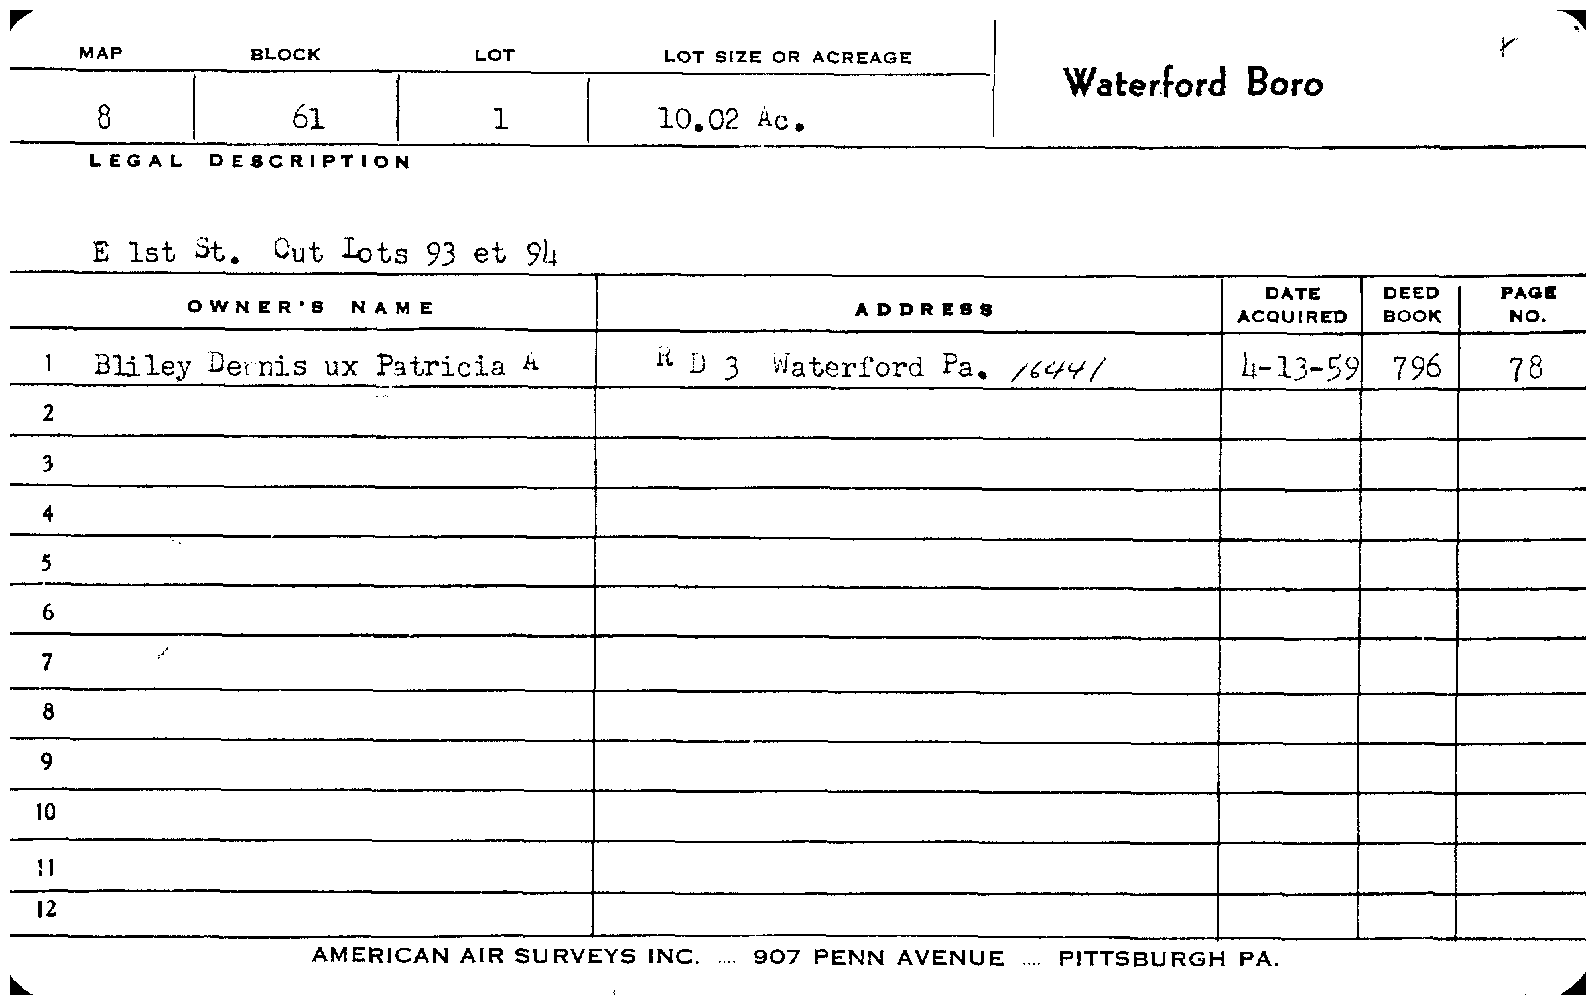 MAP BLOCK LOT LOT SIZE OR ACREAGE
Waterford Boro
8 61 1 10.02 Ac.
LEGAL DESCRIPTION
E 1st St. Out Lots 93 et 94
OWNER'S NAME ADDRESS DATE ACQUIRED DEED BOOK PAGE NO.
1 Bliley Dennis ux Patricia A R D 3 Waterford Pa. 16441 4-13-59 796 78
2
3
4
5
6
7
8
9
10
11
12
AMERICAN AIR SURVEYS INC. .... 907 PENN AVENUE .... PITTSBURGH PA.